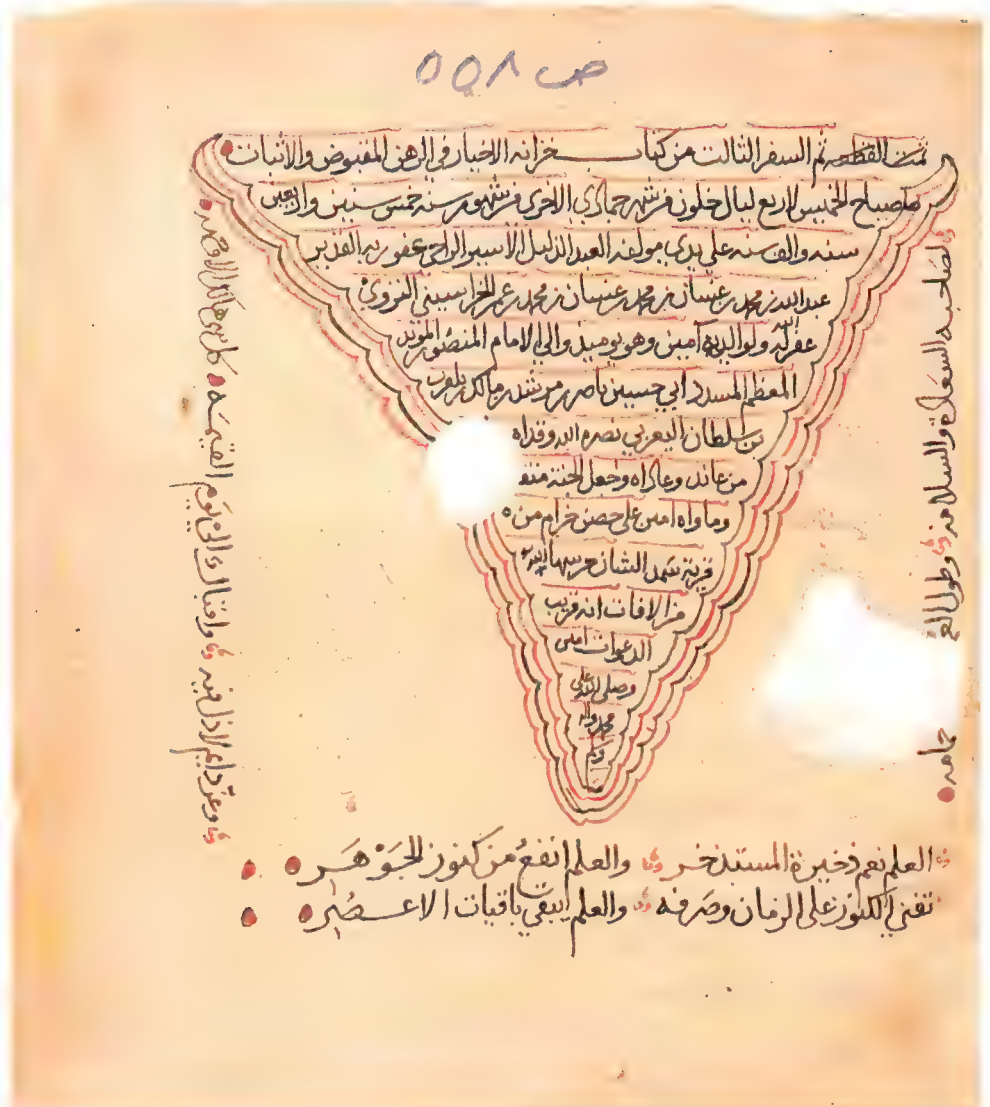 ص ٥٥٨
تمت القطعه تم السفر الثالث من كتاب خزانه الاخيار في الرهن المقبوض والاثبات
صباح الخميس لاربع ليال خلون من شهر جمادي الاخرى من شهور سنه خمس سنين واربعين
سنه والف سنه على يدي مولفه العبد الذليل الاسير الراجي عفو ربه القدير
عبدالله بن محمد بن غسان بن محمد بن غسان بن محمد بن عمر الخراسيني النزوي
غفر الله له ولوالديه امين وهو يوميذ والي الامام المنصور المويد
المعظم المسدد ابي حسين ناصر بن مرشد بن مالك بن بلعرب
بن سلطان اليعربي نصره الله
من عانده وعاداه وجعل الجنة
وماواه امين على حصن من
قرية سمد الشان حرسها الله
من الافات انه قريب
الدعوات امين
وصلى الله على
محمد واله
وسلم
لصاحبه السعادة والسلامة وطول
حمامه
وعز دايم لا ذل فيه واقبال الى يوم القيمه
العلم نعم ذخيرة المستذخر والعلم انفع من كنوز الجوهر
تفنى الكنوز على الزمان وصرفه والعلم يبقى باقيات الاعصر